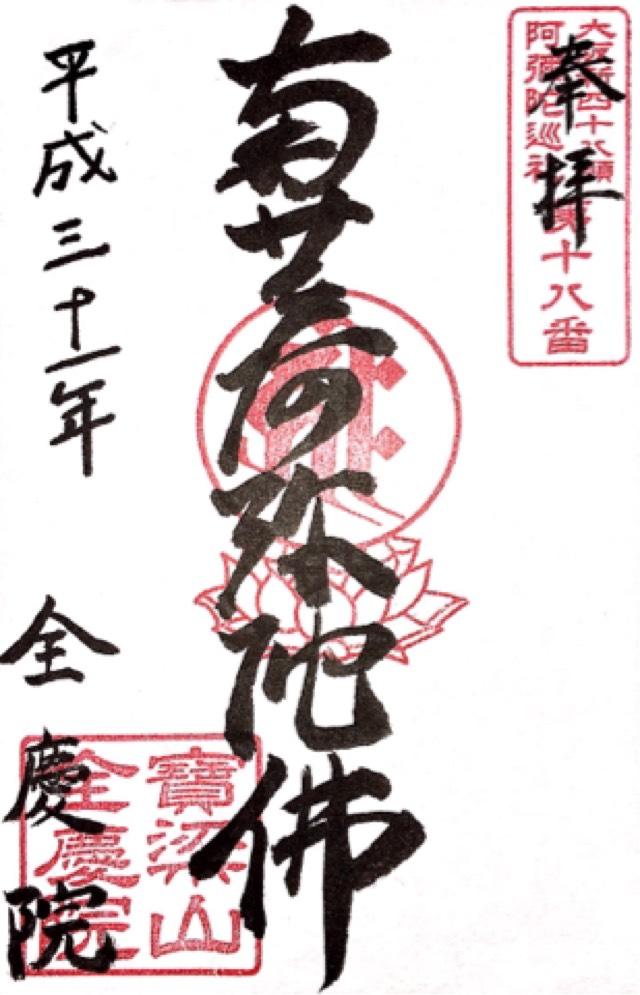 奉拝
大阪新四十八願
阿彌陀巡礼
第十八番
南無阿弥陀佛
平成三十一年
全慶院
寶梁山
全慶院